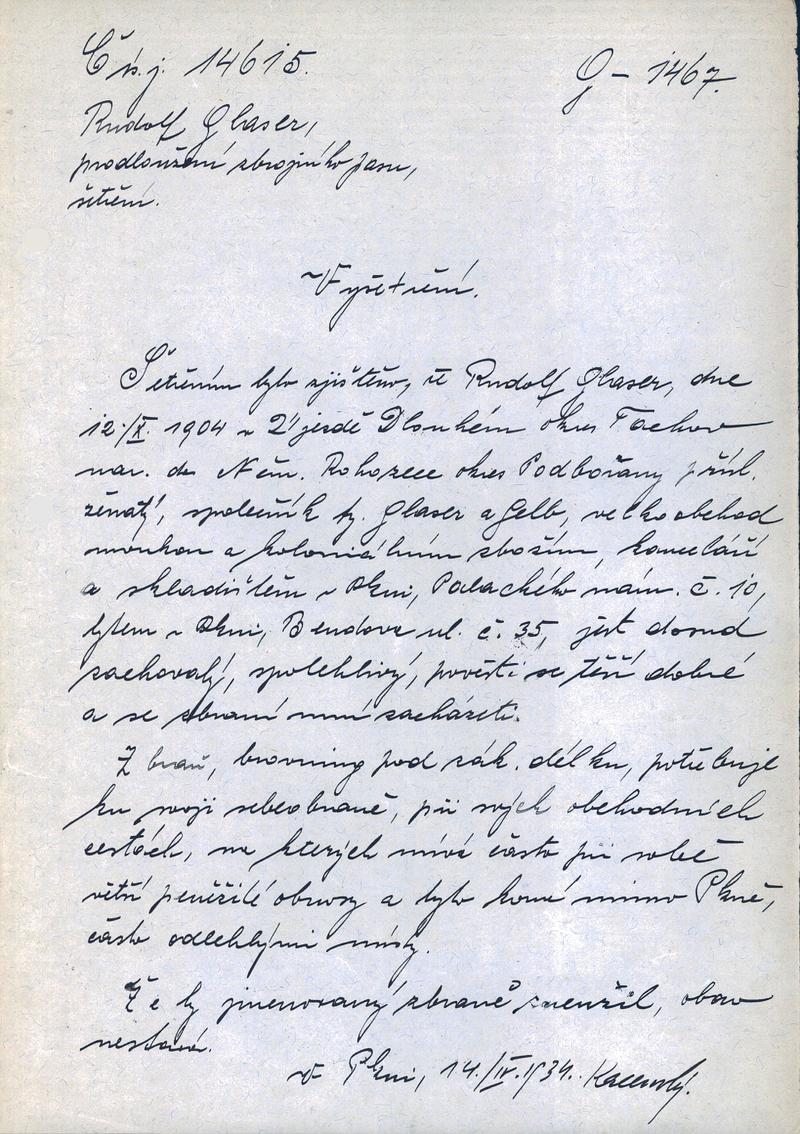 Čís. j. 14615. G - 1467.
Rudolf Glaser,
prodloužení zbrojního pasu,
šetření.
Vyšetření.
Šetřením bylo zjištěno, že Rudolf Glaser, dne
12./X. 1904 v Újezdě Dlouhém okres Tachov
nar. do Něm. Rohozce okres Podbořany přísl.
ženatý, společník fy. Glaser a Gelb, velkoobchod
moukou a koloniálním zbožím, kanceláří
a skladištěm v Plzni, Palackého nám. č. 10,
bytem v Plzni, Bendova ul. č. 35, jest dosud
zachovalý, spolehlivý, pověsti se těší dobré
a se zbraní umí zacházeti.
Zbraň, browning pod zák. délku, potřebuje
ku svoji sebeobraně, při svých obchodních
cestách, na kterých mívá často při sobě
větší peněžité obnosy a tyto koná mimo Plzně,
často odlehlými místy.
Že by jmenovaný zbraně zneužil, obav
nestává.
V Plzni, 14./IV. 1934.